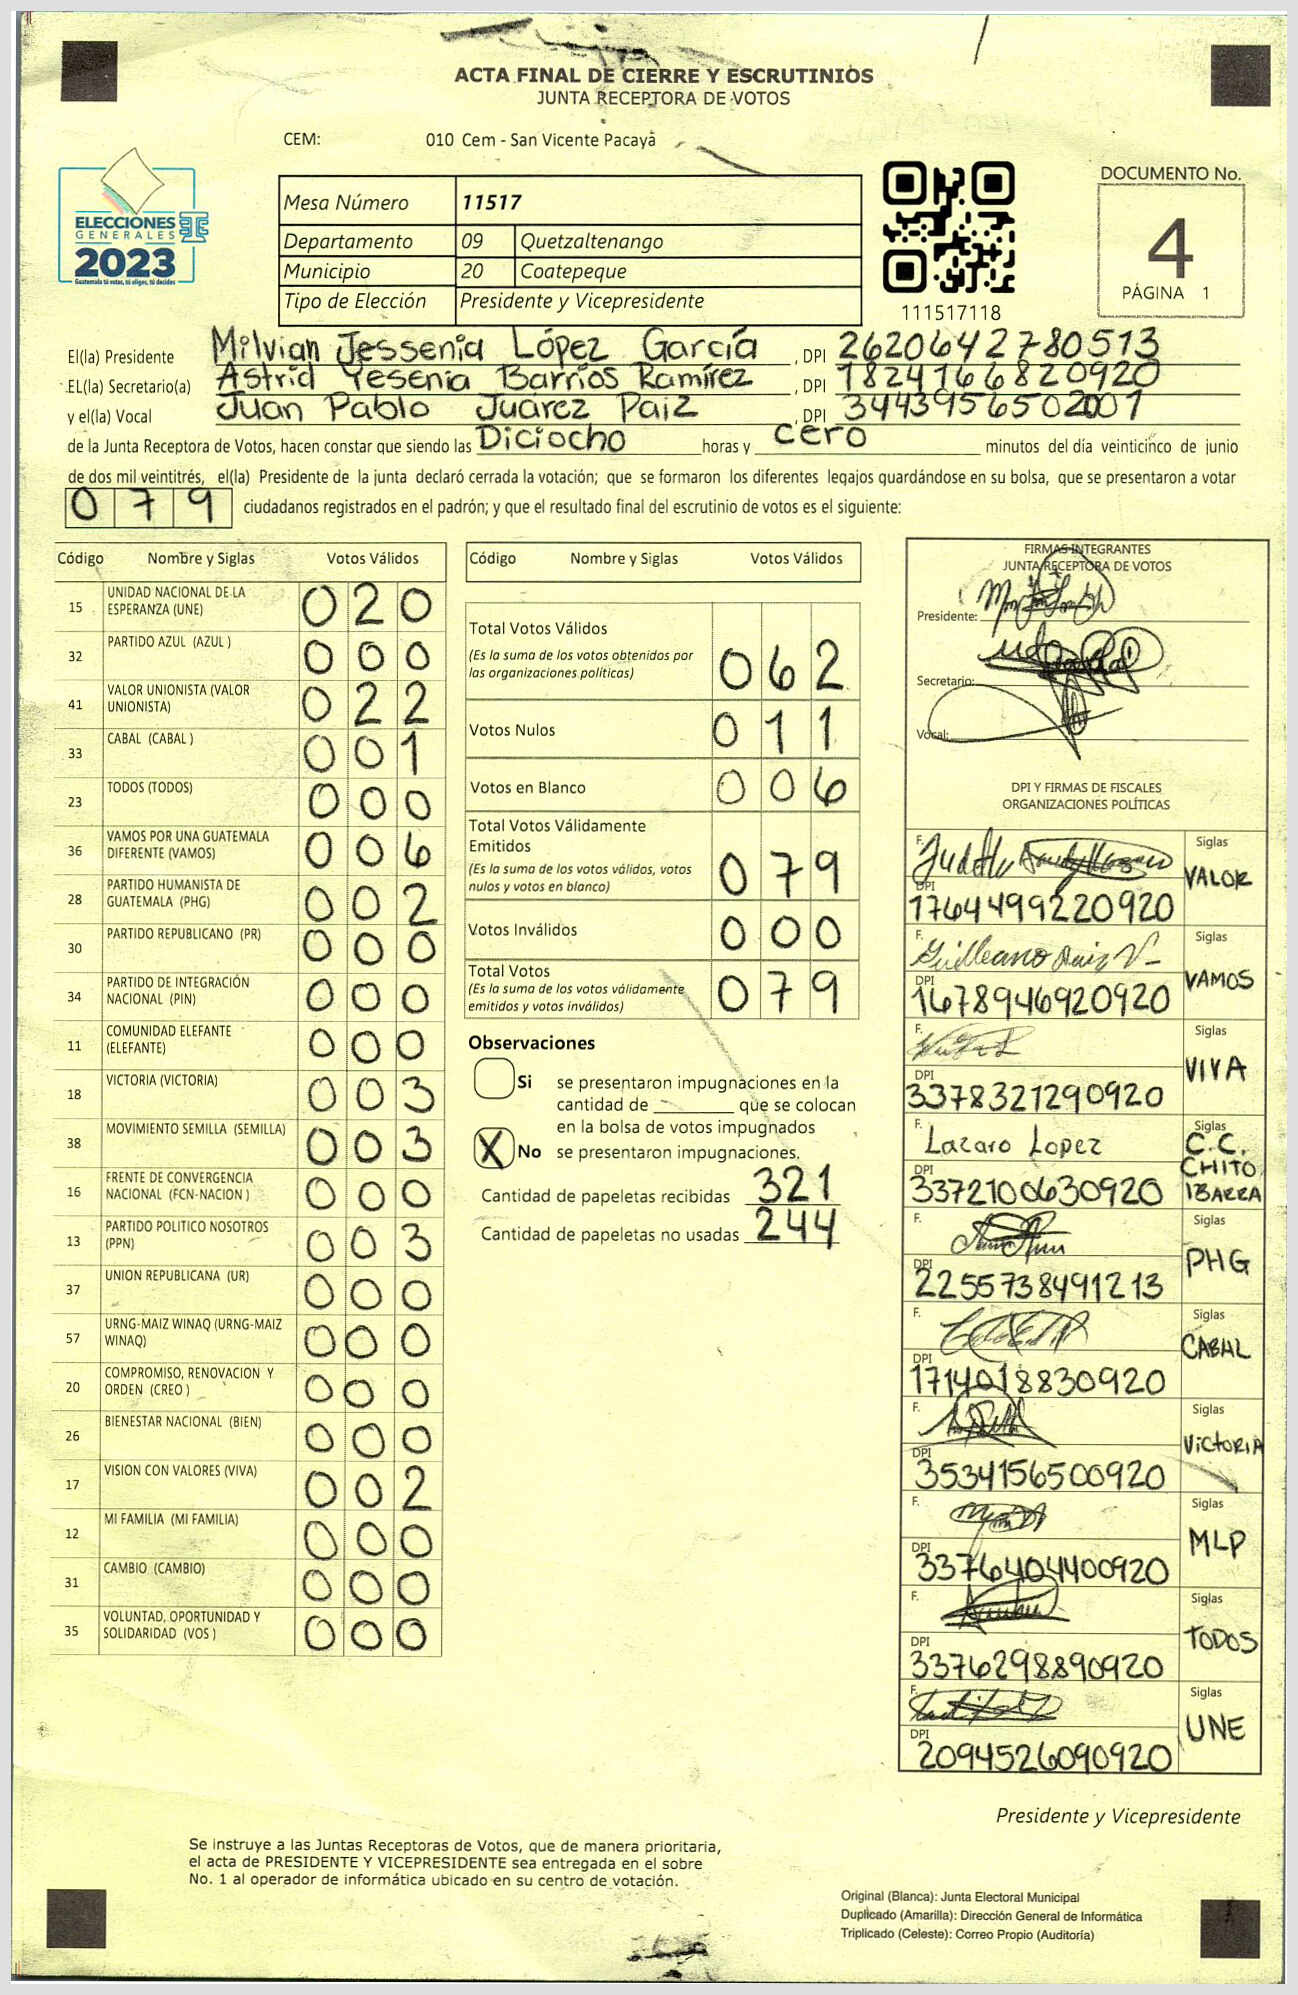 ACTA FINAL DE CIERRE Y ESCRUTINIOS
JUNTA RECEPTORA DE VOTOS
CEM: 010 Cem - San Vicente Pacaya
ELECCIONES
GENERALES
2023
Guatemala tú votas, tú eliges, tú decides
TSE
Mesa Número 11517
Departamento 09 Quetzaltenango
Municipio 20 Coatepeque
Tipo de Elección Presidente y Vicepresidente
111517118
DOCUMENTO No.
4
PÁGINA 1
El(la) Presidente Milvian Jessenia López García , DPI 2620642780513
EL(la) Secretario(a) Astrid Yesenia Barrios Ramírez , DPI 1824166820920
y el(la) Vocal Juan Pablo Juárez Paiz , DPI 3443956502001
de la Junta Receptora de Votos, hacen constar que siendo las Diciocho horas y cero minutos del día veinticinco de junio
de dos mil veintitrés, el(la) Presidente de la junta declaró cerrada la votación; que se formaron los diferentes legajos guardándose en su bolsa, que se presentaron a votar
079 ciudadanos registrados en el padrón; y que el resultado final del escrutinio de votos es el siguiente:
Código Nombre y Siglas Votos Válidos
15 UNIDAD NACIONAL DE LA ESPERANZA (UNE) 020
32 PARTIDO AZUL (AZUL ) 000
41 VALOR UNIONISTA (VALOR UNIONISTA) 022
33 CABAL (CABAL ) 001
23 TODOS (TODOS) 000
36 VAMOS POR UNA GUATEMALA DIFERENTE (VAMOS) 006
28 PARTIDO HUMANISTA DE GUATEMALA (PHG) 002
30 PARTIDO REPUBLICANO (PR) 000
34 PARTIDO DE INTEGRACIÓN NACIONAL (PIN) 000
11 COMUNIDAD ELEFANTE (ELEFANTE) 000
18 VICTORIA (VICTORIA) 003
38 MOVIMIENTO SEMILLA (SEMILLA) 003
16 FRENTE DE CONVERGENCIA NACIONAL (FCN-NACION ) 000
13 PARTIDO POLITICO NOSOTROS (PPN) 003
37 UNION REPUBLICANA (UR) 000
57 URNG-MAIZ WINAQ (URNG-MAIZ WINAQ) 000
20 COMPROMISO, RENOVACION Y ORDEN (CREO ) 000
26 BIENESTAR NACIONAL (BIEN) 000
17 VISION CON VALORES (VIVA) 002
12 MI FAMILIA (MI FAMILIA) 000
31 CAMBIO (CAMBIO) 000
35 VOLUNTAD, OPORTUNIDAD Y SOLIDARIDAD (VOS ) 000
Código Nombre y Siglas Votos Válidos
Total Votos Válidos 062
(Es la suma de los votos obtenidos por
las organizaciones políticas)
Votos Nulos 011
Votos en Blanco 006
Total Votos Válidamente
Emitidos 079
(Es la suma de los votos válidos, votos
nulos y votos en blanco)
Votos Inválidos 000
Total Votos 079
(Es la suma de los votos válidamente
emitidos y votos inválidos)
Observaciones
Si se presentaron impugnaciones en la
cantidad de ________ que se colocan
en la bolsa de votos impugnados
X No se presentaron impugnaciones.
Cantidad de papeletas recibidas 321
Cantidad de papeletas no usadas 244
FIRMAS INTEGRANTES
JUNTA RECEPTORA DE VOTOS
Presidente:
Secretario:
Vocal:
DPI Y FIRMAS DE FISCALES
ORGANIZACIONES POLÍTICAS
F. Judith Siglas
DPI 1764499220920 VALOR
F. Siglas
DPI 1678946920920 VAMOS
F. Siglas
DPI 3378321290920 VIVA
F. Lazaro Lopez Siglas
DPI 3372100630920 C.C. CHITO IBARRA
F. Siglas
DPI 2255738491213 PHG
F. Siglas
DPI 1714018830920 CABAL
F. Siglas
DPI 3534156500920 VICTORIA
F. Siglas
DPI 3376404400920 MLP
F. Siglas
DPI 3376298890920 TODOS
F. Siglas
DPI 2094526090920 UNE
Presidente y Vicepresidente
Se instruye a las Juntas Receptoras de Votos, que de manera prioritaria,
el acta de PRESIDENTE Y VICEPRESIDENTE sea entregada en el sobre
No. 1 al operador de informática ubicado en su centro de votación.
Original (Blanca): Junta Electoral Municipal
Duplicado (Amarilla): Dirección General de Informática
Triplicado (Celeste): Correo Propio (Auditoría)